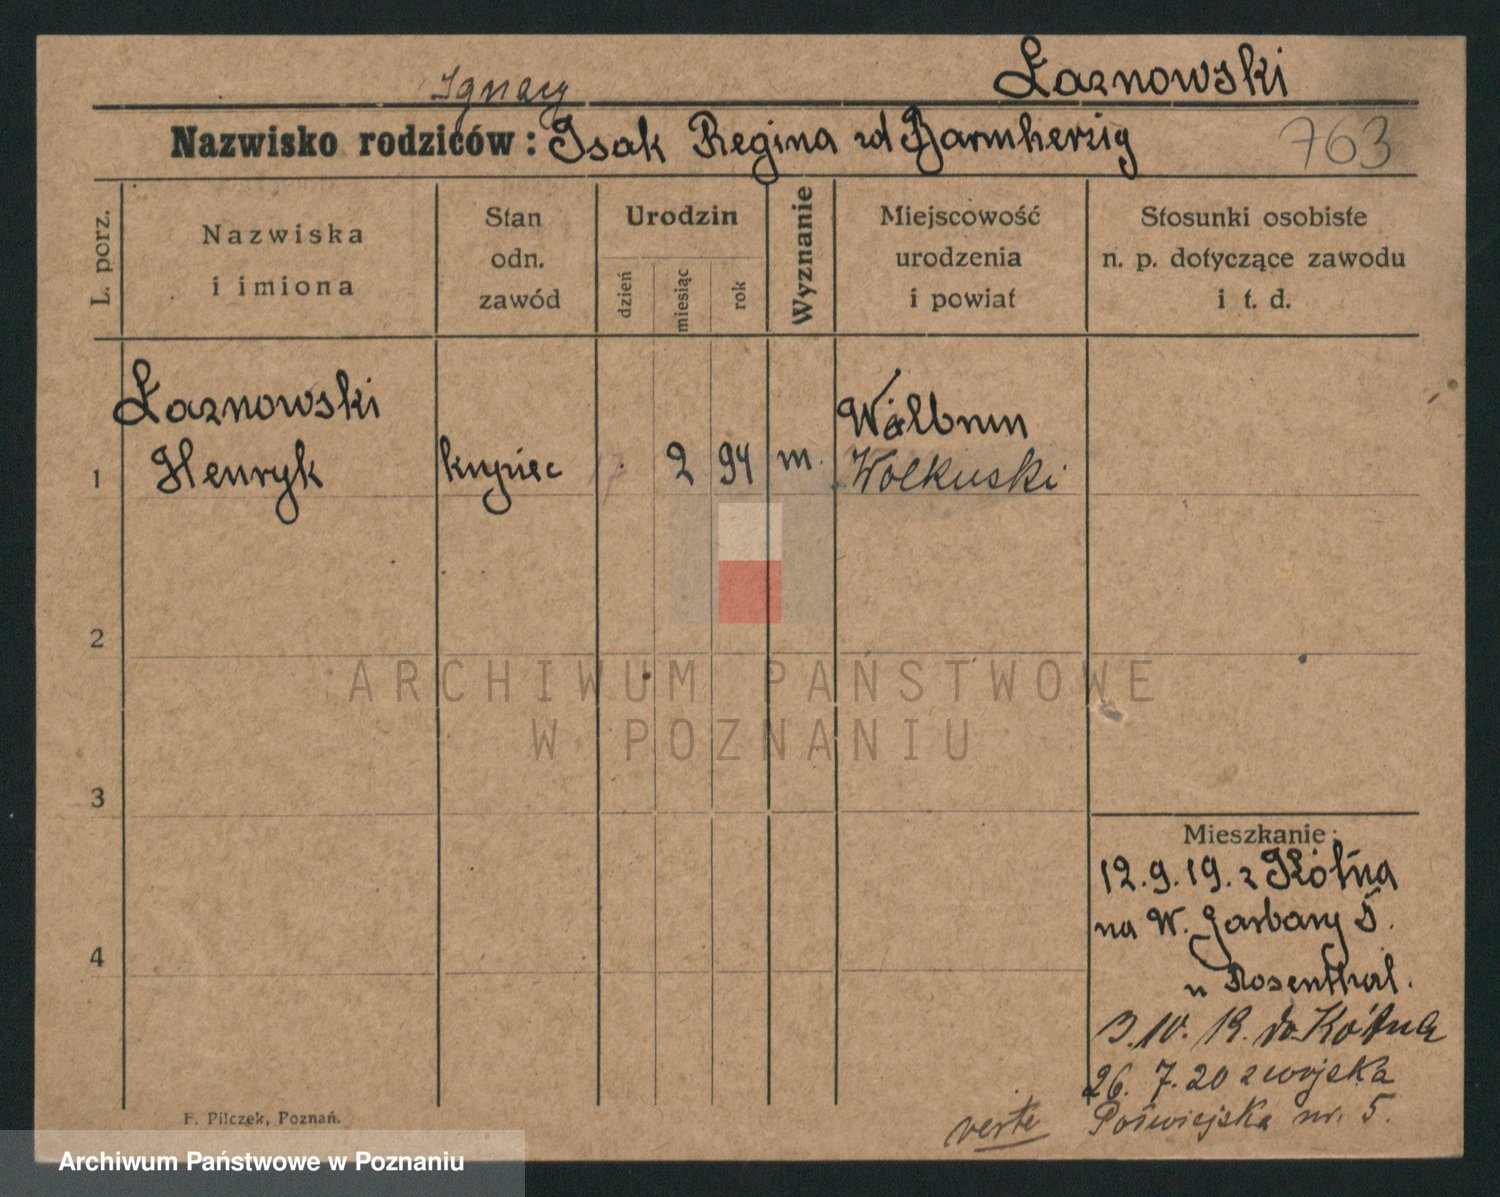 Łaznowski
Ignacy
Nazwisko rodziców: Isak Regina zd Barmherzig
763
L. porz.
Nazwiska
i imiona
Stan
odn.
zawód
Urodzin
dzień
miesiąc
rok
Wyznanie
Miejscowość
urodzenia
i powiat
Stosunki osobiste
n. p. dotyczące zawodu
i t. d.
Łaznowski
Henryk
1
kupiec
17
2
94
m.
Wolbrum
Wolkuski
2
3
4
ARCHIWUM PAŃSTWOWE
W POZNANIU
Mieszkanie:
12.9.19. z Kółna
na W. Garbary 5.
u Rosenthal.
3.10.19. do Kółna
26. 7. 20 z wojska
nr. 5.
verte
F. Pilczek, Poznań.
Archiwum Państwowe w Poznaniu